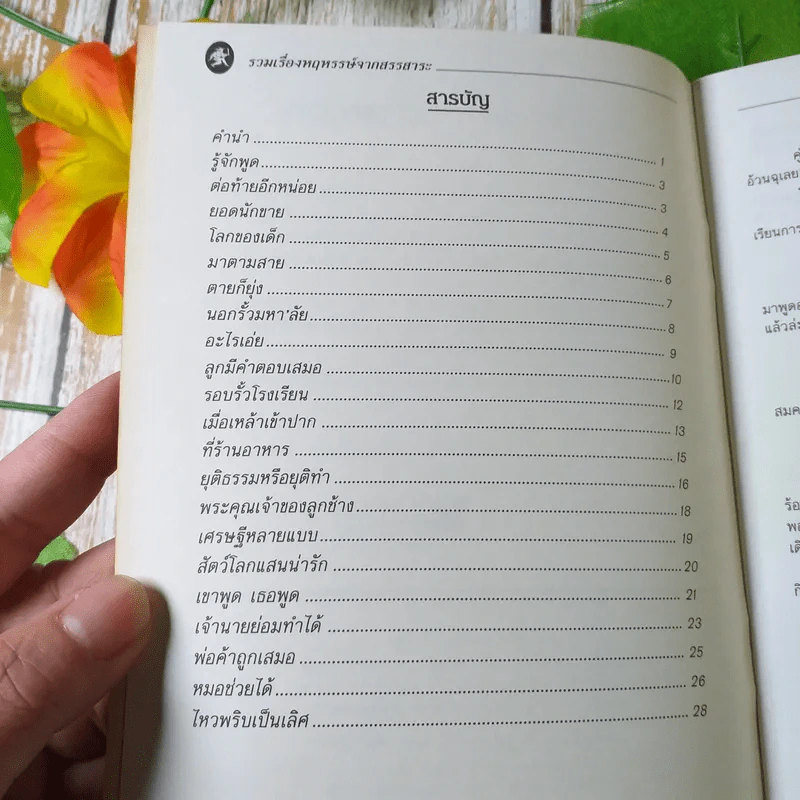 รวมเรื่องหฤหรรษ์จากสรรสาระ
สารบัญ
คำนำ 1
รู้จักพูด 3
ต่อท้ายอีกหน่อย 3
ยอดนักขาย 4
โลกของเด็ก 5
มาตามสาย 6
ตายก็ยุ่ง 7
นอกรั้วมหา'ลัย 8
อะไรเอ่ย 9
ลูกมีคำตอบเสมอ 10
รอบรั้วโรงเรียน 12
เมื่อเหล้าเข้าปาก 13
ที่ร้านอาหาร 15
ยุติธรรมหรือยุติทำ 16
พระคุณเจ้าของลูกช้าง 18
เศรษฐีหลายแบบ 19
สัตว์โลกแสนน่ารัก 20
เขาพูด เธอพูด 21
เจ้านายย่อมทำได้ 23
พ่อค้าถูกเสมอ 25
หมอช่วยได้ 26
ไหวพริบเป็นเลิศ 28
อ้วนฉุเลย
เรียนการ
มาพูด
แล้วล่ะ
สมค
ร้อ